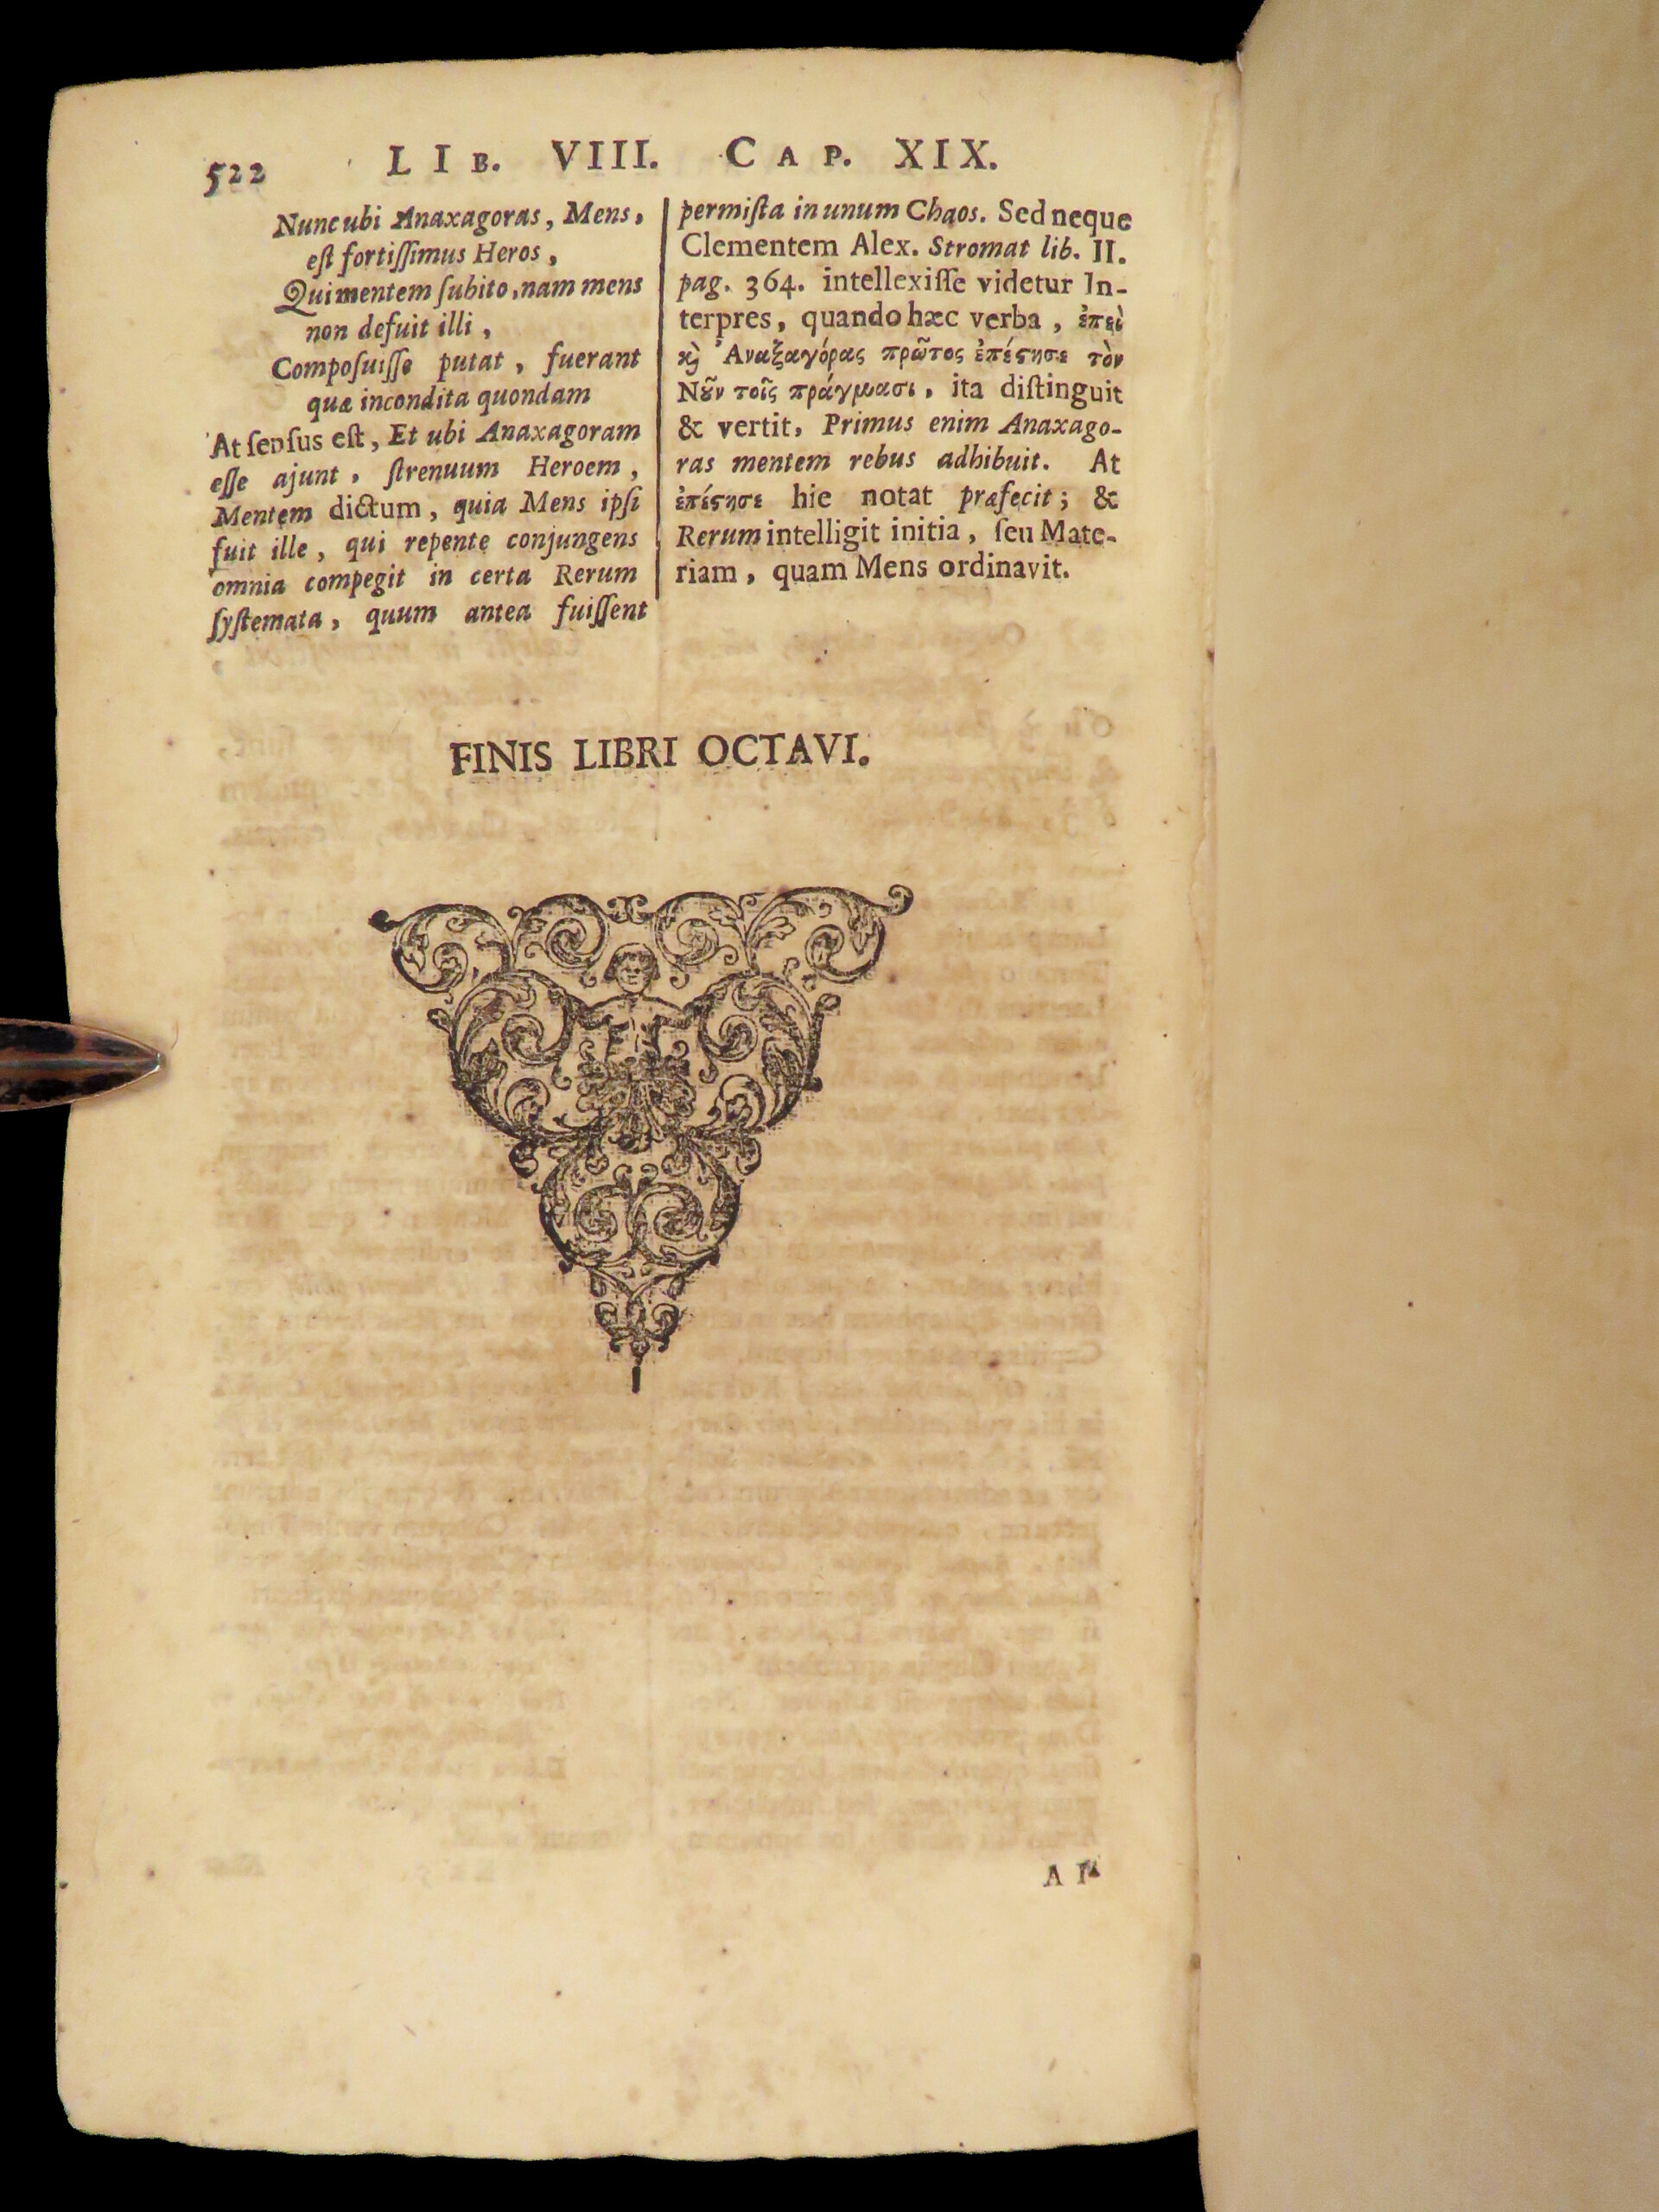 522 LIB. VIII. CAP. XIX.
Nunc ubi Anaxagoras, Mens,
eſt fortiſſimus Heros,
Qui mentem ſubito, nam mens
non defuit illi,
Compoſuiſſe putat, fuerant
quæ incondita quondam
At ſenſus eſt, Et ubi Anaxagoram
eſſe ajunt, ſtrenuum Heroem,
Mentem dictum, quia Mens ipſi
fuit ille, qui repente conjungens
omnia compegit in certa Rerum
ſyſtemata, quum antea fuiſſent
permiſta in unum Chaos. Sed neque
Clementem Alex. Stromat lib. II.
pag. 364. intellexiſſe videtur In-
terpres, quando hæc verba, ἐπεὶ
ϗ̀ Ἀναξαγόρας πρῶτος ἐπέϛησε τὸν
Νȣ̃ν τοῖς πράγμασι, ita diſtinguit
& vertit, Primus enim Anaxago-
ras mentem rebus adhibuit. At
ἐπέϛησε hie notat præfecit; &
Rerum intelligit initia, ſeu Mate-
riam, quam Mens ordinavit.
FINIS LIBRI OCTAVI.